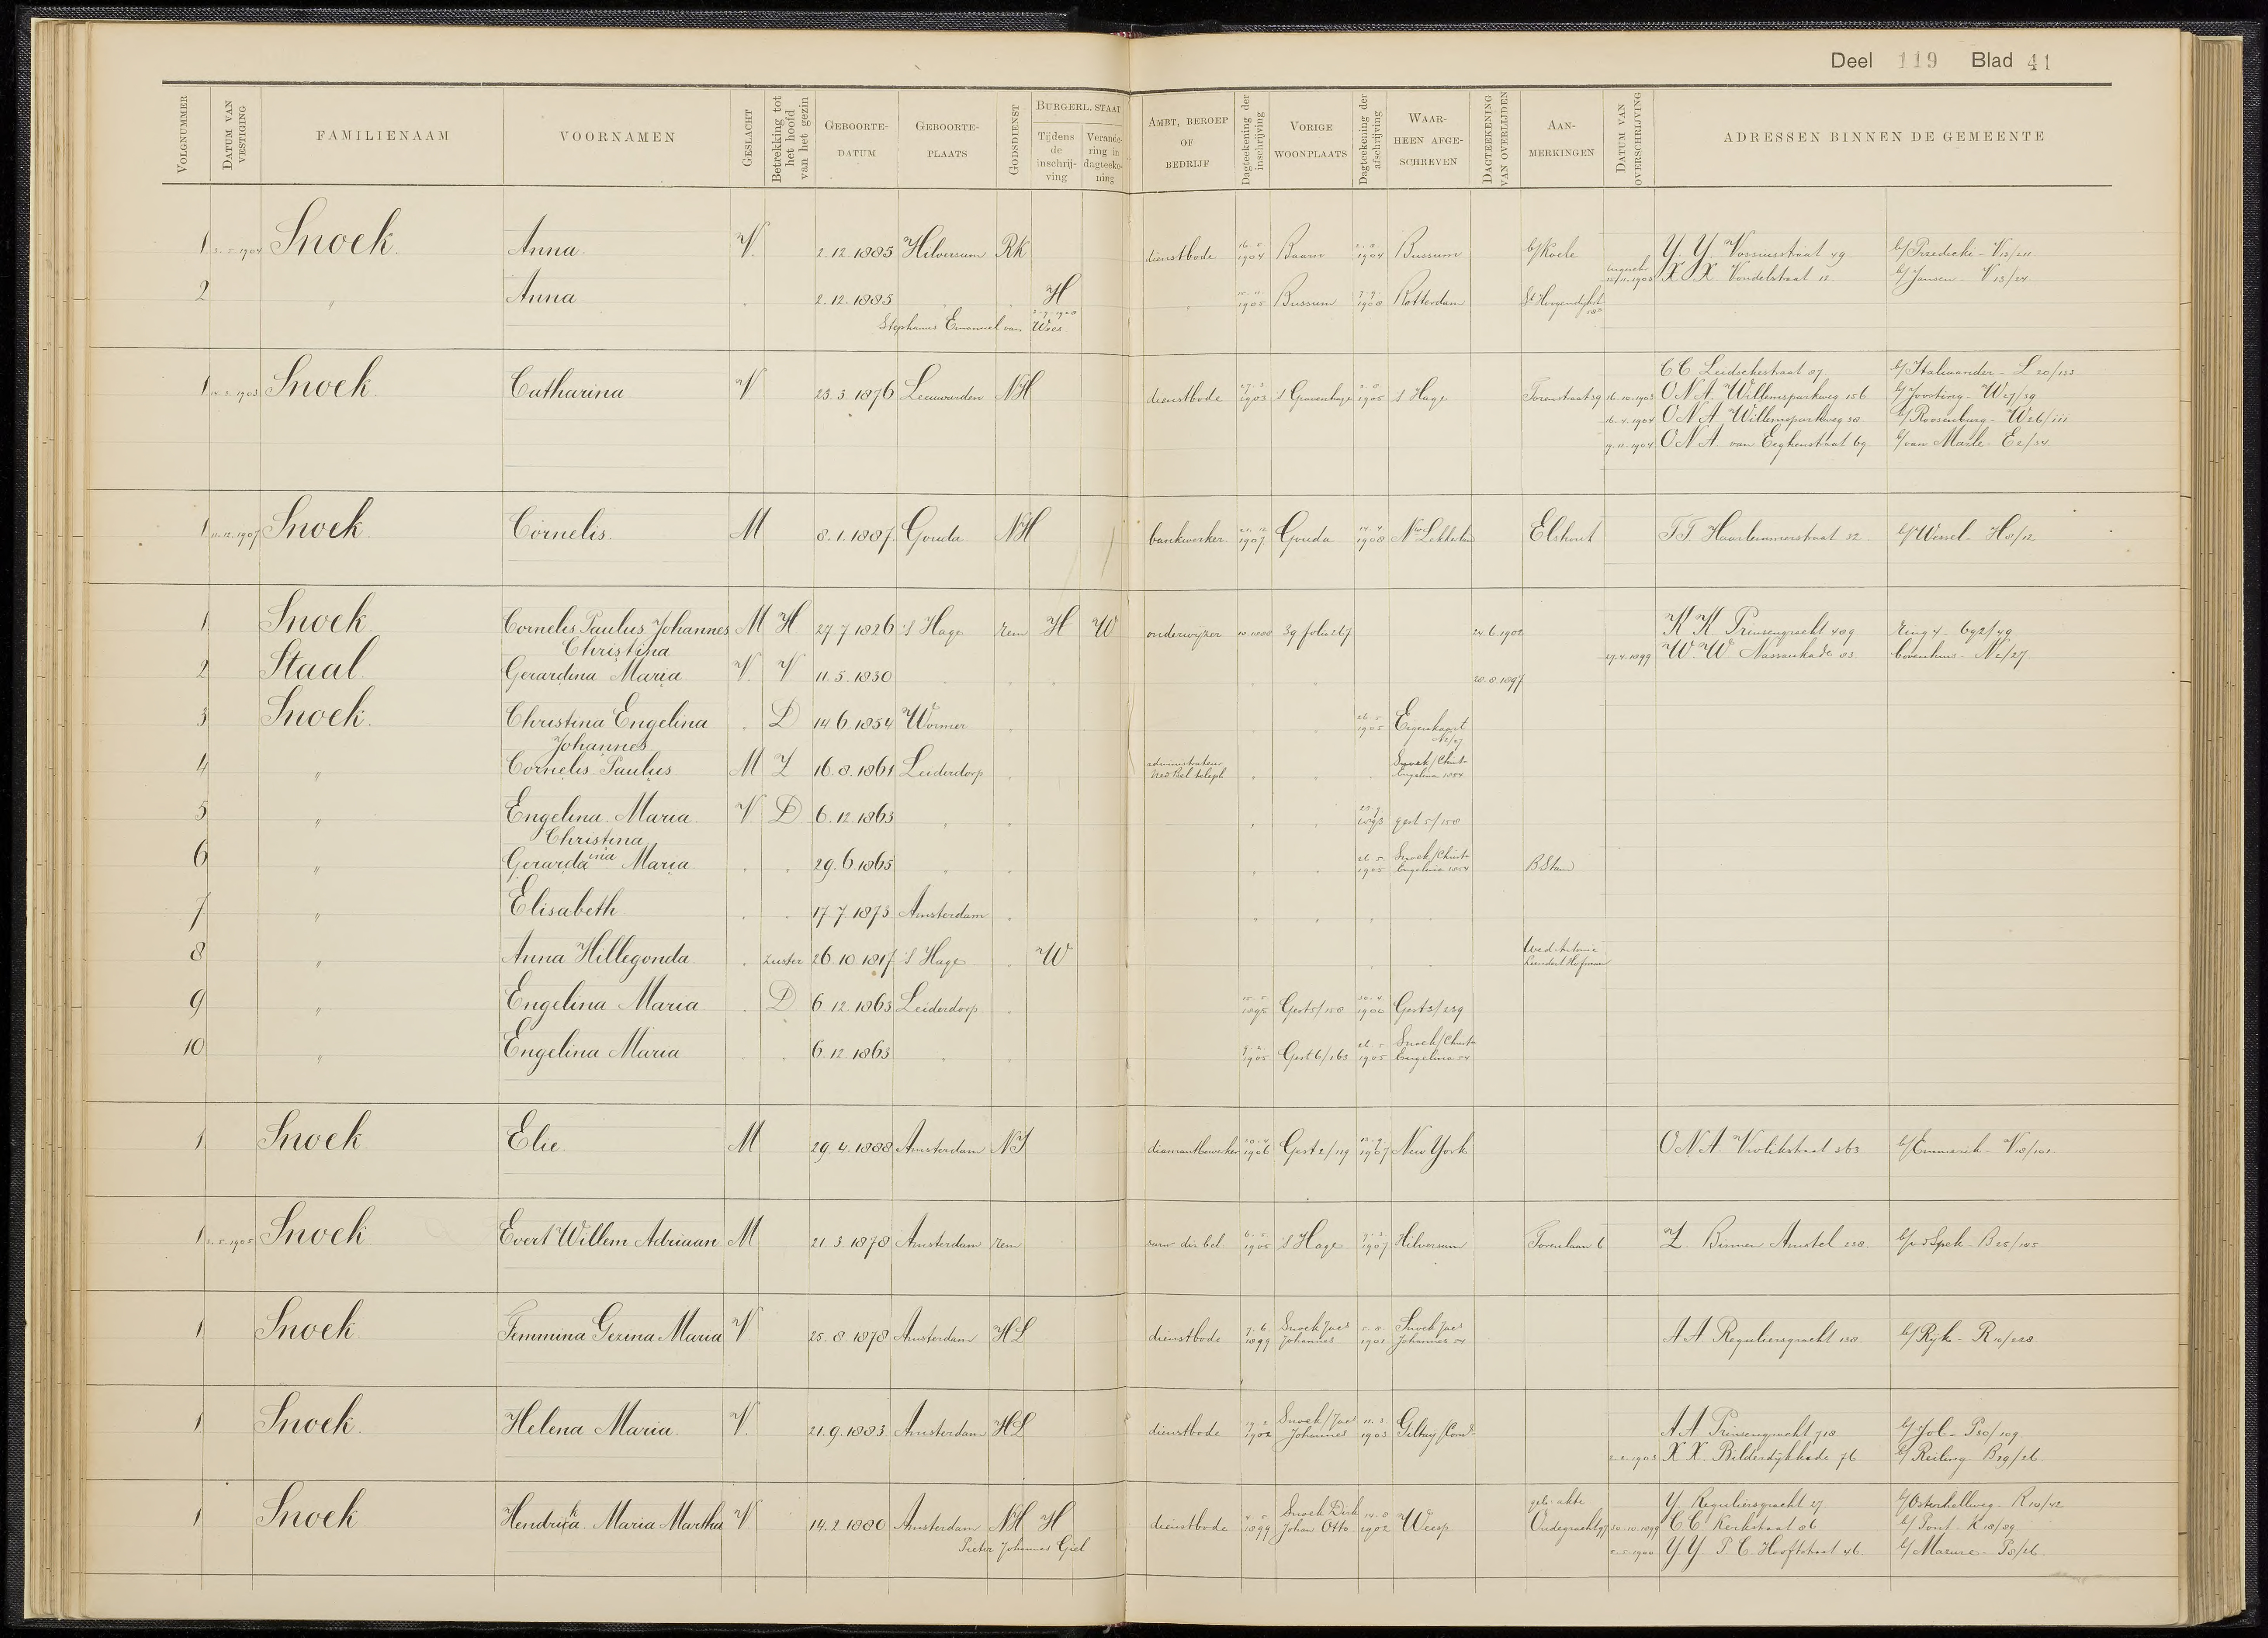 Deel 119 Blad 41
VOLGNUMMER DATUM VAN VESTIGING FAMILIENAAM VOORNAMEN GESLACHT Betrekking tot het hoofd van het gezin GEBOORTE-DATUM GEBOORTE-PLAATS GODSDIENST BURGERL. STAAT Tijdens de inschrijving Verandering in dagteekening AMBT, BEROEP OF BEDRIJF Dagteekening der inschrijving VORIGE WOONPLAATS Dagteekening der afschrijving WAARHEEN AFGESCHREVEN DAGTEEKENING VAN OVERLIJDEN AANMERKINGEN DATUM VAN OVERSCHRIJVING ADRESSEN BINNEN DE GEMEENTE
1 Snoek. Anna V. 2.12.1885 Hilversum RK dienstbode 1904 Baarn 1904 Bussum b/Koele Y.Y. Vossiusstraat 49
2 " Anna 2.12.1885 H 1905 Bussum 1908 Rotterdam X X Vondelstraat 12 b/Jansen V 13/24
Stephanus Emanuel van Wees
CC Leidschestraat 87
1 Snoek. Catharina V 23.3.1876 Leeuwarden NH dienstbode 1903 's Gravenhage 1905 's Hage 16.10.1903 ONA. Willemsparkweg 156
16.4.1904 ONA Willemsparkweg 38 b/Roosenburg W26/111
19.12.1904 ONA van Eeghenstraat 69 b/van Marle E2/34
1 11.12.1907 Snoek. Cornelis. M 8.1.1887 Gouda NH bankwerker 1907 Gouda 1908 Nw Lekkerland Elshout TT Haarlemmerstraat 32 b/Wessel H8/12
1 Snoek Cornelis Paulus Johannes M H 27.7.1826 's Hage rem H W onderwijzer 39 folio 267 24.6.1902 KK Prinsengracht 409
Christina
2 Staal Gerardina Maria V. V 11.5.1830 28.8.1897 27.4.1899 W.W. Nassaukade 83 bovenhuis N2/27
3 Snoek. Christina Engelina D 14.6.1854 Wormer 26.5.1905 Eigenkaart N2/27
Johannes
4 " Cornelis Paulus M Z 16.8.1861 Leiderdorp administrateur Ned Bel teleph Snoek/Christ Engelina 1854
5 " Engelina Maria V D 6.12.1863 gest 5/158
Christina
6 " Gerardaina Maria 29.6.1865 26.5.1905 Snoek/Christ Engelina 1854
7 " Elisabeth 17.7.1873 Amsterdam
8 " Anna Hillegonda zuster 26.10.1817 's Hage W Wed Antonie Leendert Hofman
9 " Engelina Maria D 6.12.1863 Leiderdorp 1895 Gest 5/158 Gest 3/239
10 " Engelina Maria 6.12.1863 1905 Gest 6/163 26.5.1905 Snoek/Christ Engelina 54
1 Snoek Elie M 29.4.1888 Amsterdam NI diamantbewerker 1906 Gest 2/119 1907 New York ONA. Vrolikstraat 363 b/Emmerik V18/101
1 Snoek Evert Willem Adriaan M 21.3.1878 Amsterdam rem surn dir bel. 1905 's Hage 1907 Hilversum Torenlaan 6 Z Binnen Amstel 238 b/vd Spek B25/185
1 Snoek Femmina Gezina Maria V 25.8.1878 Amsterdam HL dienstbode 7.6.1899 Snoek Jacs Johannes 1901 Snoek Jacs Johannes 54 AA Reguliersgracht 138 b/Rijk R10/228
1 Snoek. Helena Maria. V. 21.9.1883 Amsterdam HL dienstbode 1902 Snoek/Jacs Johannes 1903 AA Prinsengracht 718 b/Jol P30/109
2.2.1903 XX Bilderdijkkade 76 b/Reiling B29/26
1 Snoek Hendrika Maria Martha V. 14.2.1880 Amsterdam NH H dienstbode 1899 Snoek Dirk Johan Otto 1902 Weesp geb. akte Oudegracht 97 Y Reguliersgracht 27
Pieter Johannes Giel
30.10.1899 CC Kerkstraat 86 b/Pont K18/89
YY. P C Hooftstraat 46 b/Mazure P8/26